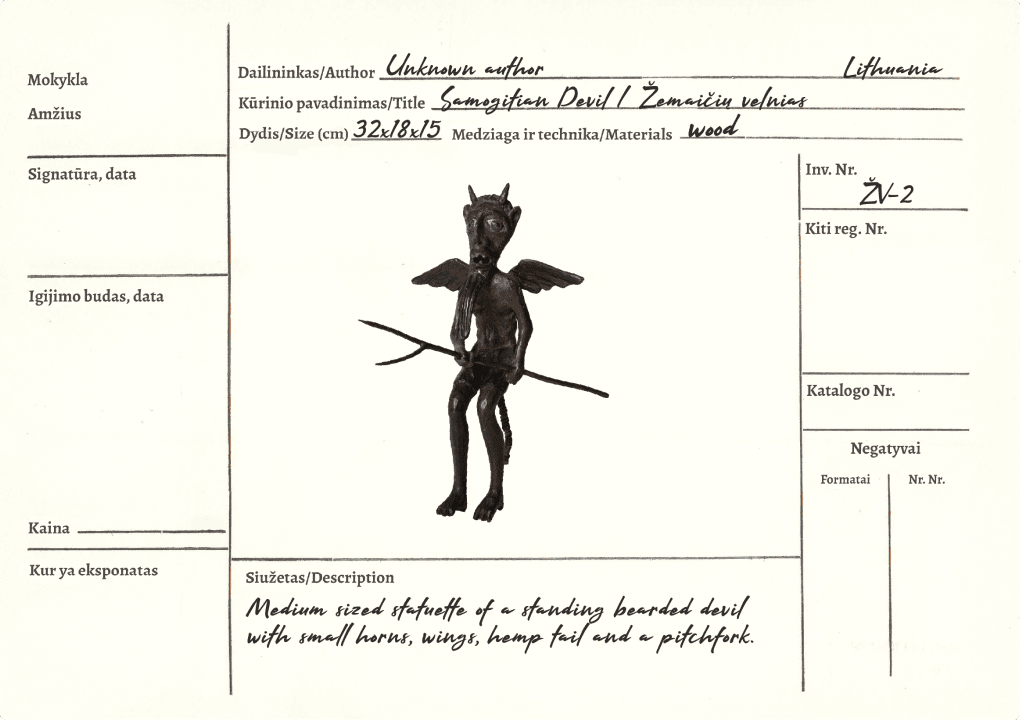 Mokykla
Amžius
Signatūra, data
Igijimo budas, data
Kaina
Kur ya eksponatas
Dailininkas/Author Unknown author Lithuania
Kūrinio pavadinimas/Title Samogitian Devil / Žemaičiu velnias
Dydis/Size (cm) 32x18x15 Medziaga ir technika/Materials wood
Siužetas/Description
Medium sized statuette of a standing bearded devil
with small horns, wings, hemp tail and a pitchfork.
Inv. Nr.
ŽV-2
Kiti reg. Nr.
Katalogo Nr.
Negatyvai
Formatai Nr. Nr.